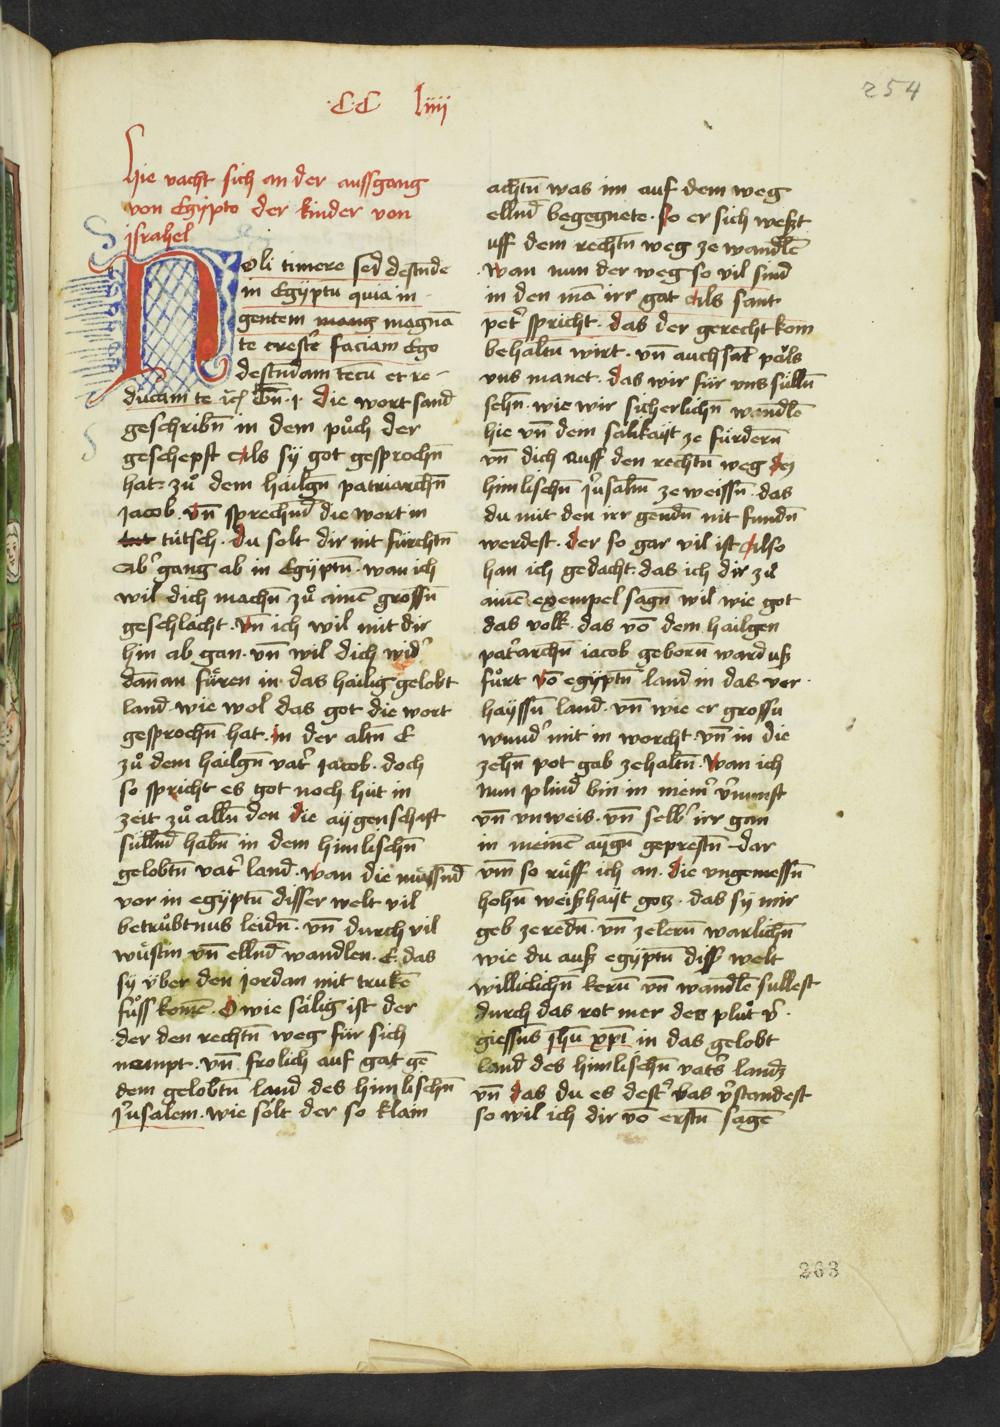 254
·C·C· liiij
Hie vacht sich an der aussgang
von Egipto der kinder von
jsrahel
Noli timere sed descende
in Egiptu quia in
gentem mang magnā
te cresce faciam Ego
descendam tecū et re-
ducam te ꝛc Gn̄·j· die wort sand
geschribn̄ in dem půch der
geschepft Als sÿ got gesprochn̄
hat zů dem hailgn̄ patriarchn̄
Jacob· vn̄ sprechend die wort in
tütsch· du solt dir nit fürchtn̄
Ab' gang ab in Egiptn̄· wan ich
wil dich machn̄ zů ainē grossn̄
geschlächt· vn̄ ich wil mit dir
hin ab gan· vn̄ wil dich wid'
dan an fůren in das hailig gelobt
land· wie wol das got die wort
gesprochn̄ hat· in der altn̄ E
zů dem hailgn̄ vat' Jacob· doch
so spricht es got noch hüt in
zeit zů alln̄ den die aÿgenschaft
sülln̄d habn̄ in dem himlischn̄
gelobtn̄ vat' land· wan die müssn̄d
vor in egÿptn̄ disser welt vil
betrůbtnus leidn̄· vn̄ durch vil
wüstin vn̄ ellnd wandlen· E das
sÿ über den jordan mit trukē
fůss komē· O wie sälig ist der
der den rechtn̄ weg für sich
nempt· vn̄ frolich auf gat gē
dem gelobtn̄ land des himlischn̄
jrusalem· wie sölt der so klain
achtn̄ was im auf dem weg
ellnd begegnete· so er sich weßt
uff dem rechtn̄ weg ze wandlē
wan nun der weg so vil sind
in den mā irr gat Als sant
pet' spricht· das der gerecht kom
behaltn̄ wirt· vn̄ auch sāt pāls
vns manet· das wir für vns sülln̄
sehn̄· wie wir sicherlichn̄ wandlē
hie vn̄ dem sälikaÿt ze fürdern̄
vn̄ dich auff den rechtn̄ weg des
himlischn̄ jrusalm̄ ze weissn̄· das
du mit den irr gendn̄ nit fundn̄
werdest· der so gar vil ist Also
han ich gedacht· das ich dir zů
ainē exempel sagn̄ wil wie got
das volk· das vō dem hailgen
pat'archn̄ jacob geborn ward uß
fůrt vō egÿptn̄ land in das ver
haÿssn̄ land· vn̄ wie er grossu
wund' mit in worcht· vn̄ in die
zehn̄ pot gab ze haltn̄· wan ich
nun plind bin in miem' v'nunft
vn̄ vnweis· vn̄ selb' irr gan
in meinē aÿgn̄ geprestn̄ dar
vm̄ so růff ich an· die vngemessn̄
hohn̄ weißhaÿt gotz· das sÿ mir
geb ze redn̄· vn̄ ze lern̄ warlichn̄
wie du auß egÿptn̄ diss welt
williclichn̄ kern̄ vn̄ wandlē sullest
durch das rot mer des plůt v'
giessn̄s jhū xp̄i in das gelobt
land des himlischn̄ vat's landz
vn̄ das du es dest' bas v'standest
so wil ich dir vō erstn̄ sagē
263